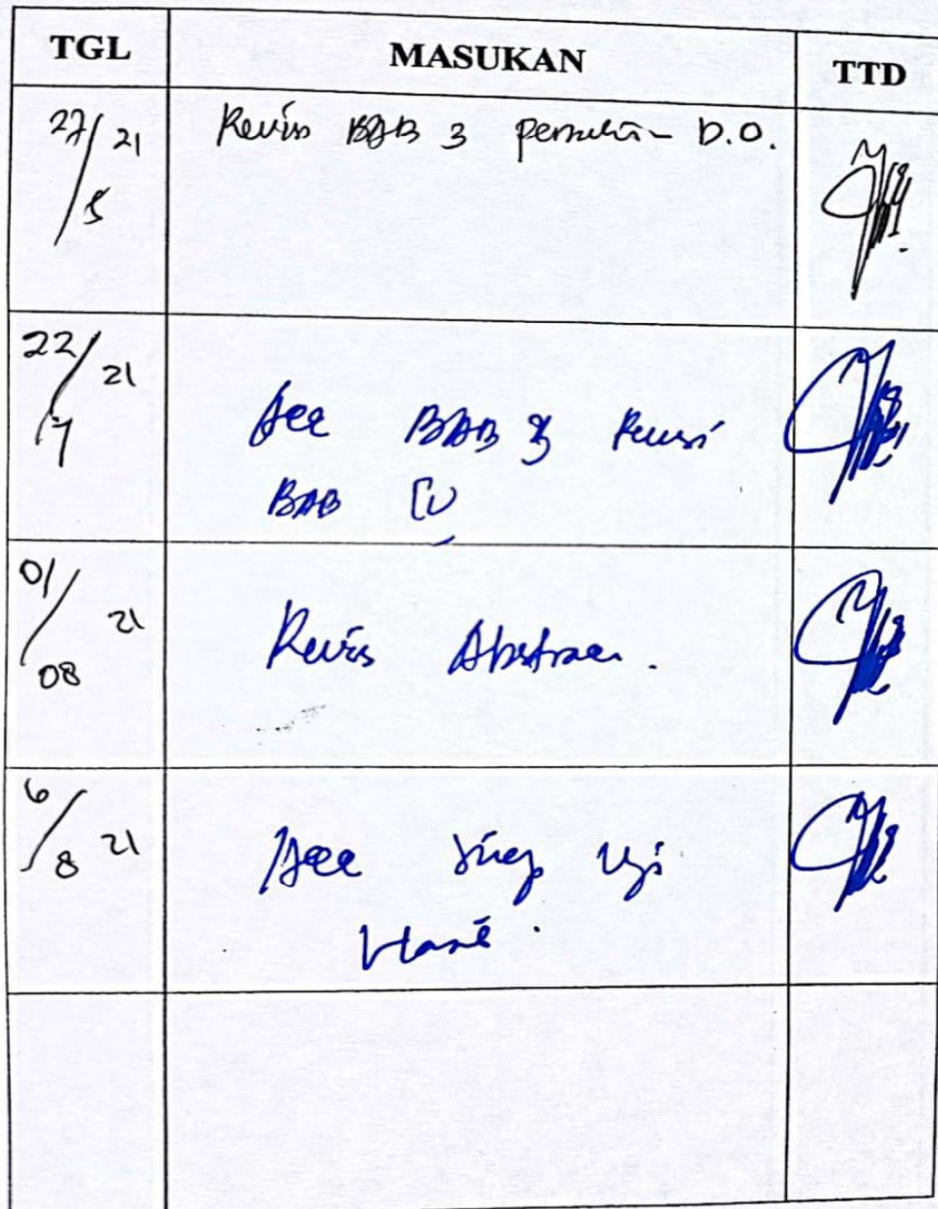 TGL MASUKAN TTD
27/5 21 Revisi BAB 3 D.O.
22/7 21
Acc BAB 3 Revisi
BAB IV
01/08 21 Revisi Abstrak.
6/8 21 Acc siap Uji
Hasil.